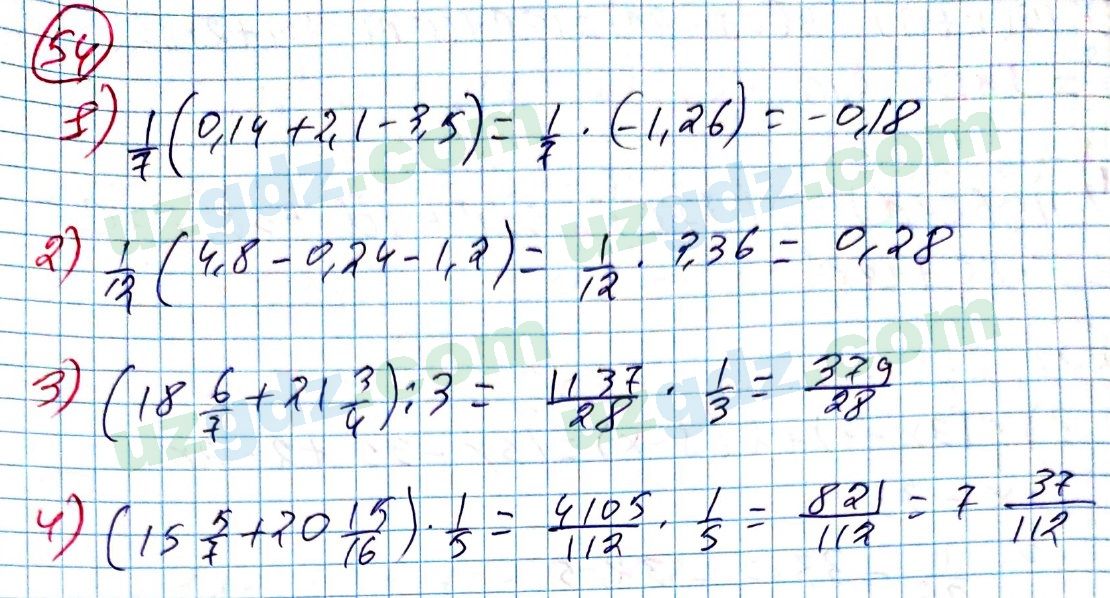 54
1) 1/7 (0,14 + 2,1 - 3,5) = 1/7 · (-1,26) = -0,18
2) 1/12 (4,8 - 0,24 - 1,2) = 1/12 · 3,36 = 0,28
3) (18 6/7 + 21 3/4) : 3 = 1137/28 · 1/3 = 379/28
4) (15 5/7 + 20 15/16) · 1/5 = 4105/112 · 1/5 = 821/112 = 7 37/112
uzgdz.com
uzgdz.com
uzgdz.com
uzgdz.com